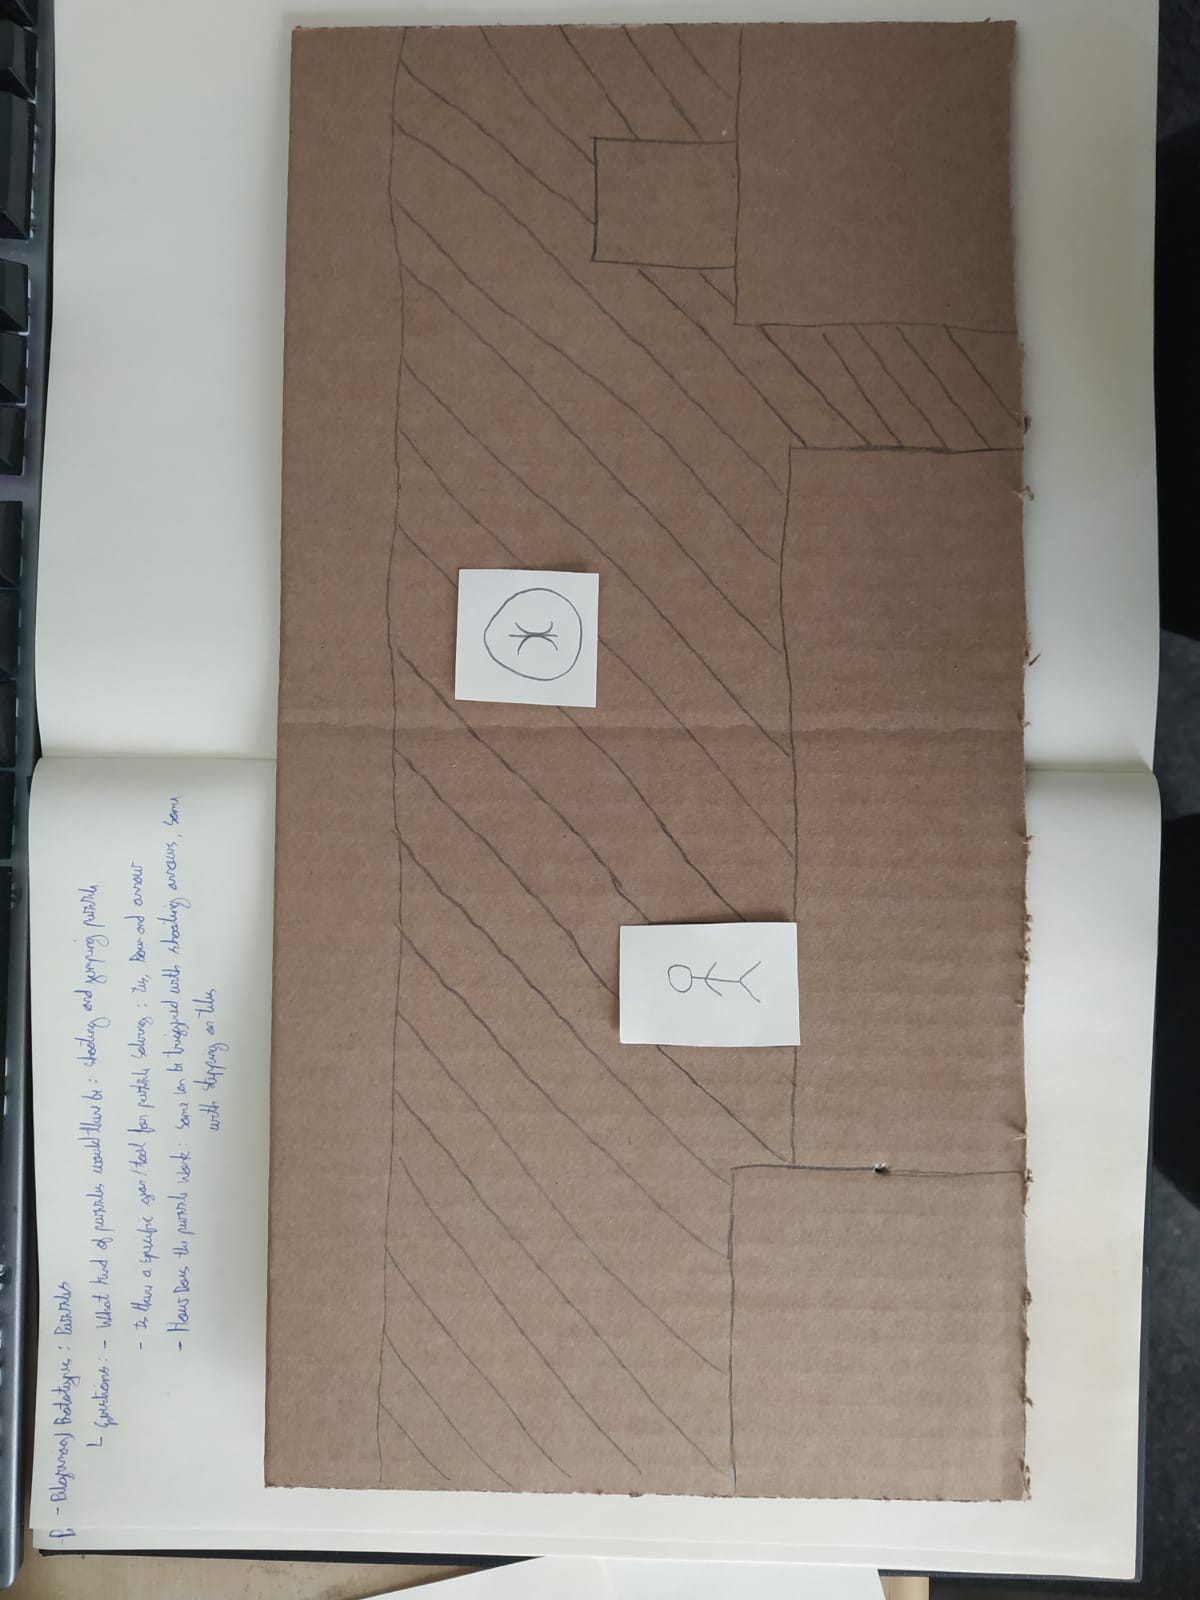 - Pilgrimoa) Prototypes : Puzzles
└ Questions : - What kind of puzzles would there be : shooting and jumping puzzle
- Is there a specific gear/tool for puzzle solving : Yes, Bow and arrow
- How Does the puzzle work : some can be triggered with shooting arrows, some
with stepping on tiles